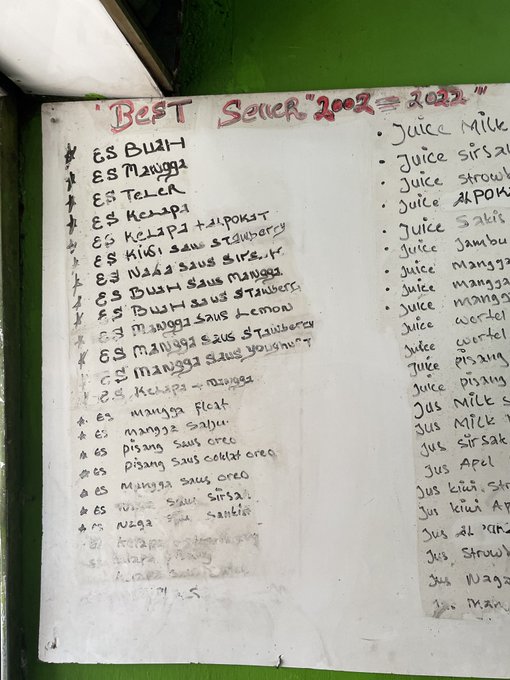 "BEST SELLER" 2002 = 2022"
ES BUAH
ES Mangga
ES TELER
ES Kelapa
ES Kelapa + ALPOKAT
ES Kiwi saus Stawberry
ES Naga saus Sirsak
ES BUAH saus Mangga
ES BUAH saus Stawberi
ES Mangga saus Lemon
ES Mangga saus Stawberry
ES Mangga saus youghurt
ES Kelapa + mangga
ES mangga float
ES mangga salju
ES pisang saus oreo
pisang saus coklat oreo
ES mangga saus oreo
ES Naga saus sirsak
ES Naga saus
Juice Milk
Juice Sirsak
Juice Strowb
Juice ALPOKA
Juice
Juice Jambu
Juice mangga
Juice mangga
Juice mangga
Juice wortel
Juice wortel
Juice pisang
Juice pisang
Jus Milk S
Jus Milk
Jus Sirsak
Jus Apel
Jus kiwi Str
Jus kiwi Ap
Jus
Jus Strowb
Jus Naga